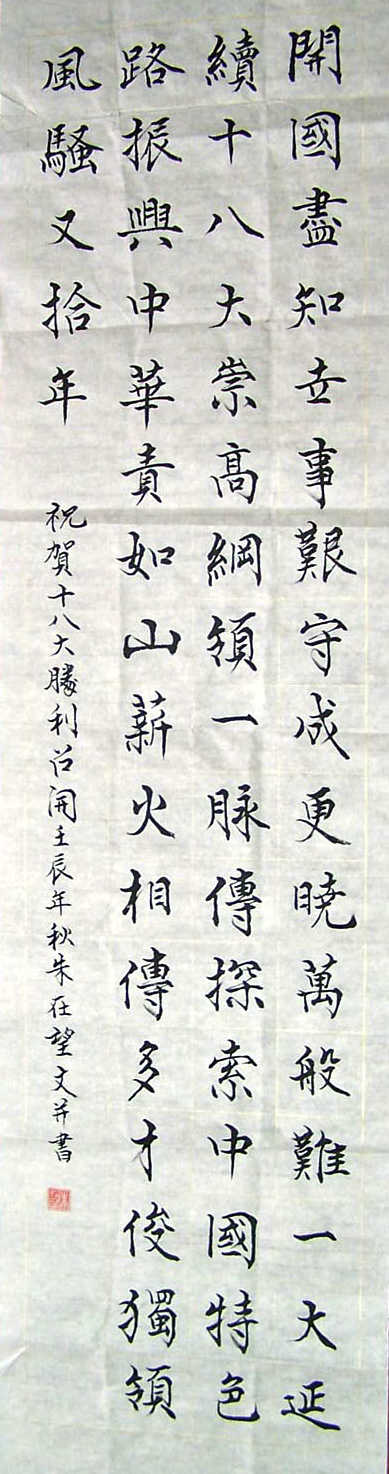 開國盡知世事艱守成更曉萬般難一大延
續十八大崇高綱領一脉傳探索中國特色
路振興中華責如山薪火相傳多才俊獨領
風騷又拾年
祝賀十八大勝利召開壬辰年秋朱在望文并書